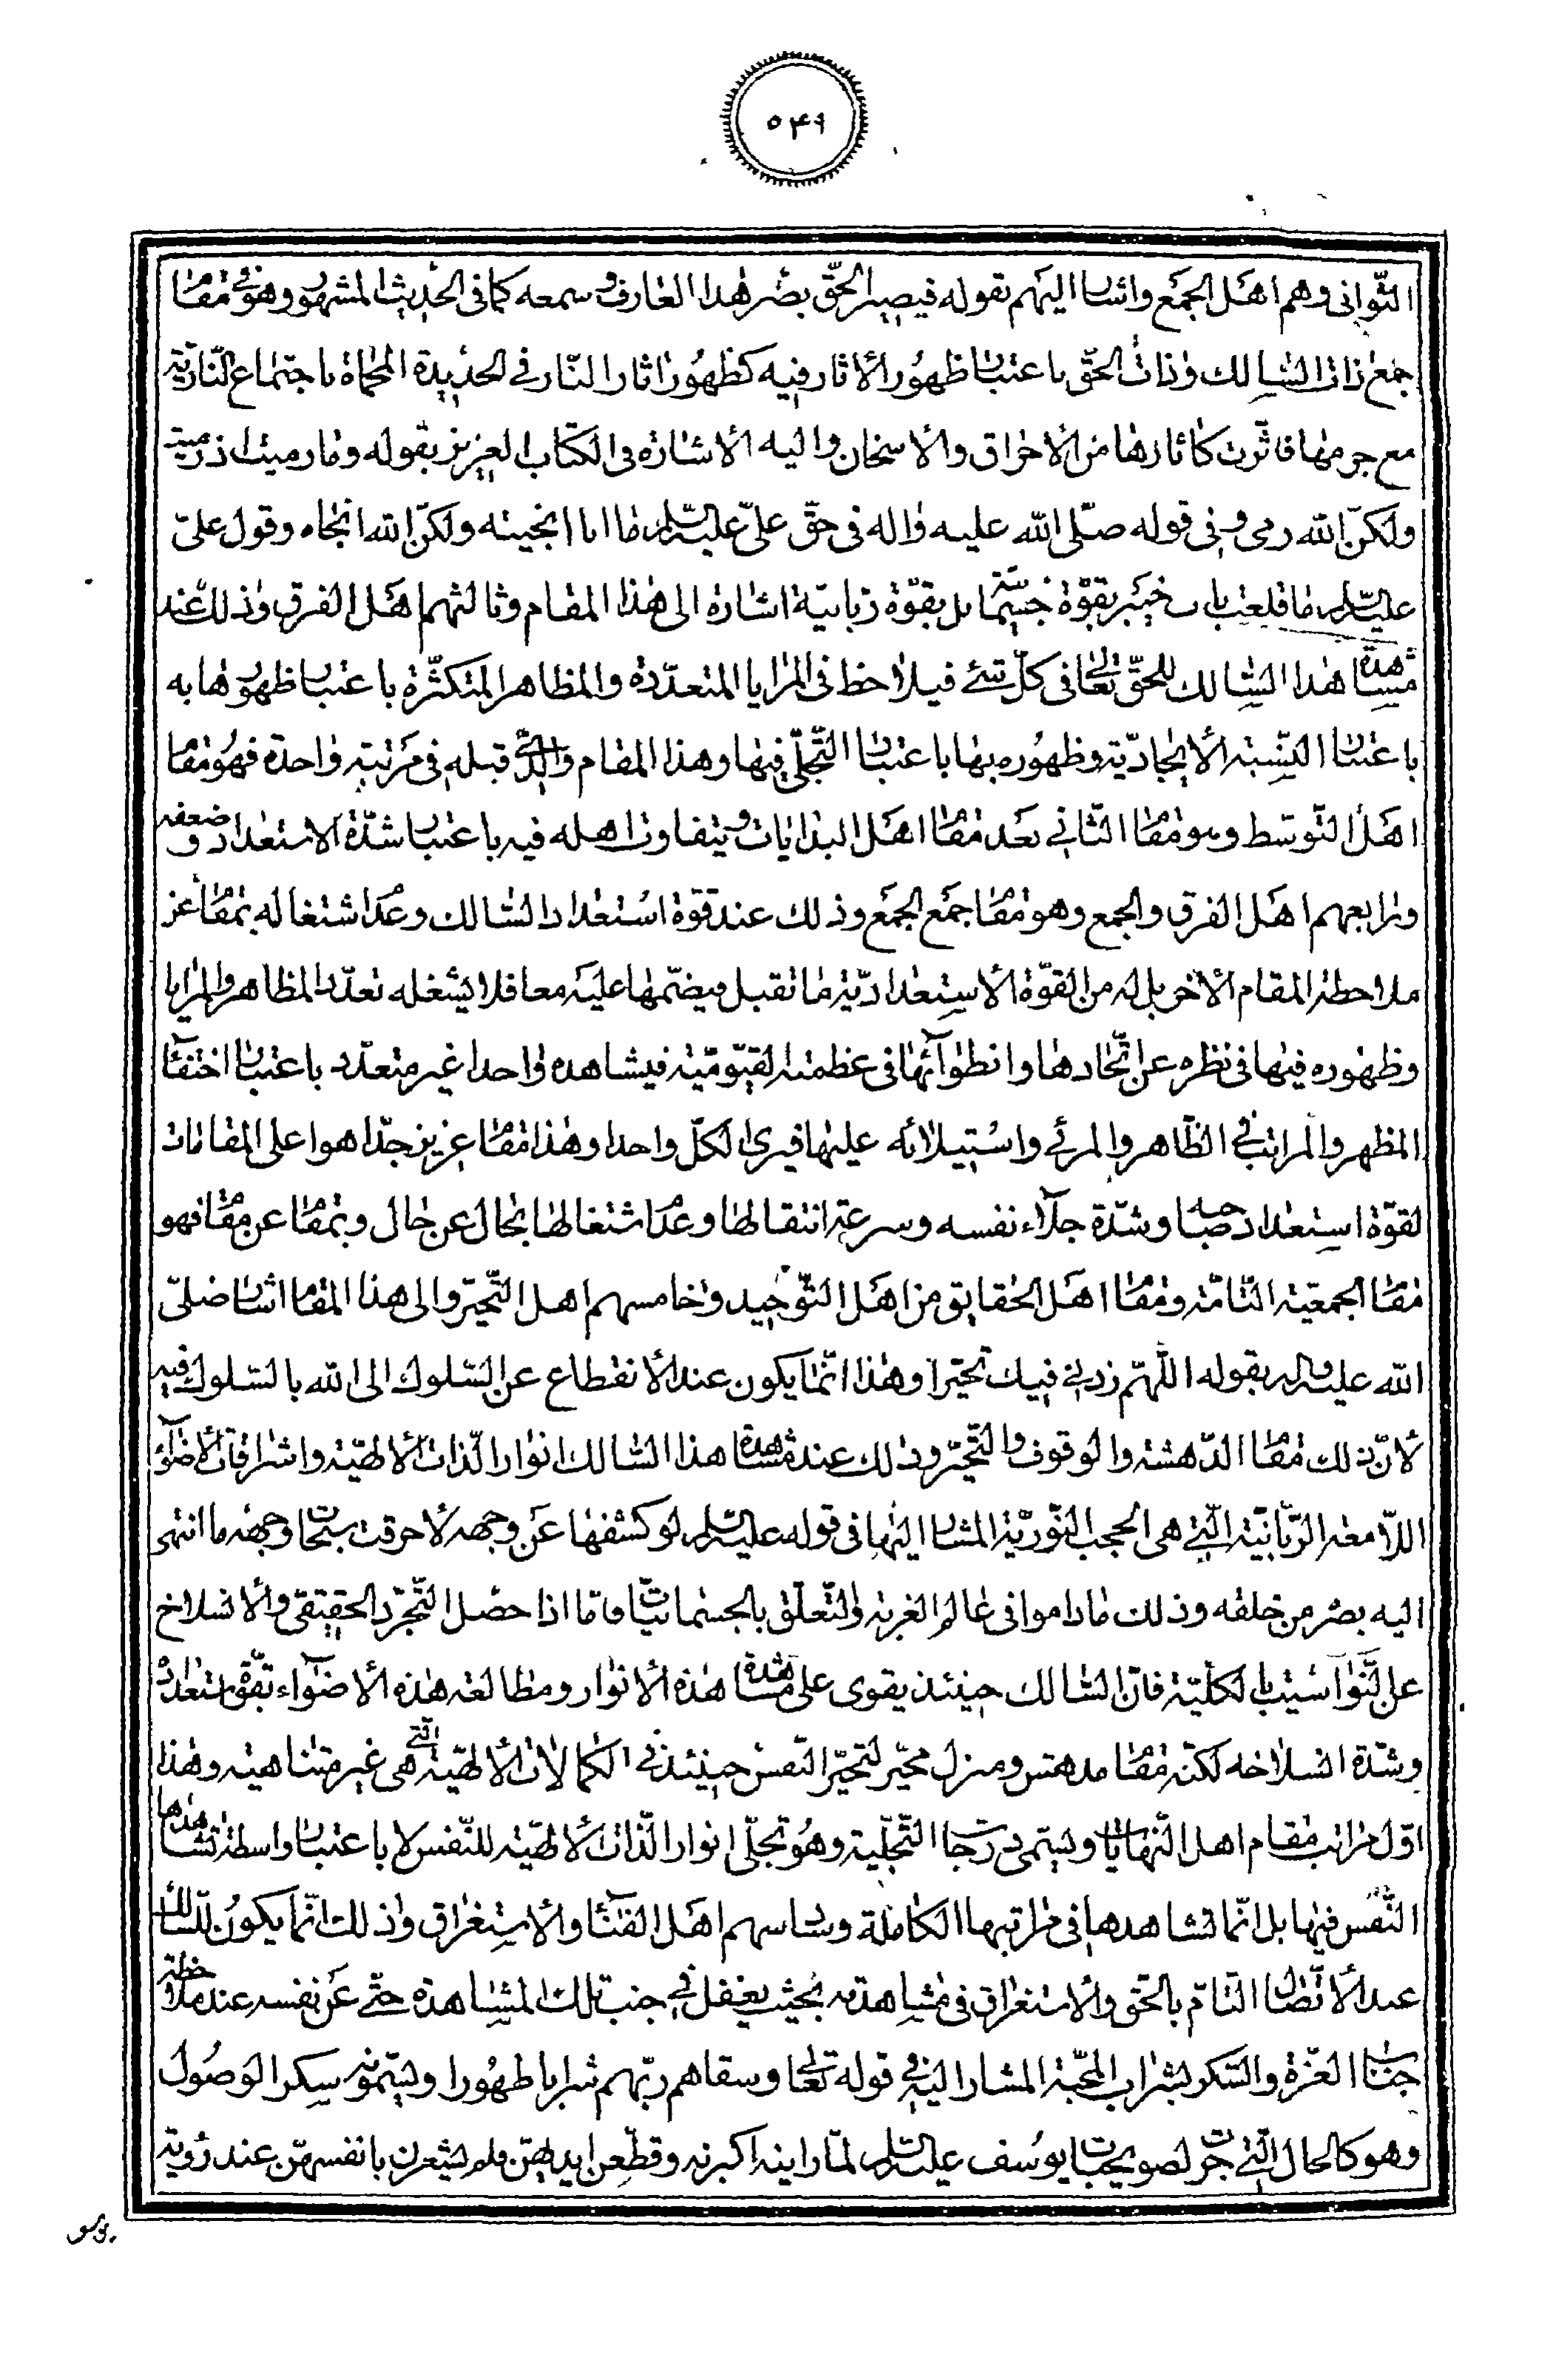 ٥٤٩
الثّوانى وهم اهل الجمع واشار اليهم بقوله فيصير الحقّ بصر هذا العارف وسمعه كما فى الحديث المشهور وهو فى مقام
جمع ذات السّالك وذات الحقّ باعتبار ظهور الاثار فيه كظهور اثار النّار فى الحديدة المحماة باجتماع النّاريّة
مع جرمها فاثّرت كاثارها من الاحراق والاسخان واليه الاشارة فى الكتاب العزيز بقوله وما رميت اذ رميت
ولكنّ الله رمى وفى قوله صلّى الله عليه واله فى حقّ علىّ عليه السّلام ما انا انجيته ولكنّ الله انجاه وقول علىّ
عليه السّلام ما قلعت باب خيبر بقوّة جسمانيّة بل بقوّة ربانيّة اشارة الى هذا المقام وثالثهم اهل الفرق وذلك عند
مشاهدة هذا السّالك للحقّ تعالى فى كلّ شئ فيلاحظ فى المرايا المتعدّدة والمظاهر المتكثّرة باعتبار ظهورها به
باعتبار النّسبة الايجاديّة وظهوره بها باعتبار التّجلّى فيها وهذا المقام والّذى قبله فى مرتبة واحدة فهو مقام
اهل التّوسّط وهو مقام الثّانى بعد مقام اهل البدايات ويتفاوت اهله فيه باعتبار شدّة الاستعداد وضعفه
ورابعهم اهل الفرق والجمع وهو مقام جمع الجمع وذلك عند قوّة استعداد السّالك وعدم اشتغاله بمقام عن
ملاحظة المقام الاخر بل له من القوّة الاستعداديّة ما تقبل فيضّمها عليه معا فلا يشغله تعدّد المظاهر والمرايا
وظهوره فيها فى نظره عن اتّحادها وانطوائها فى عظمته القيّوميّة فيشاهده واحدا غير متعدّد باعتبار اختفاء
المظهر والمراتب فى الظّاهر والمرئى واستيلائه عليها فيرى الكلّ واحدا وهذا مقام عزيز جدّا هو اعلى المقامات
لقوّة استعداد صاحبه وشدّة جلاء نفسه وسرعة انتقالها وعدم اشتغالها بحال عن حال وبمقام عن مقام فهو
مقام الجمعيّة التّامّة ومقام اهل الحقايق من اهل التّوحيد وخامسهم اهل التّحيّر والى هذا المقام اشار صلّى
الله عليه واله بقوله اللّهمّ زدنى فيك تحيّرا وهذا انّما يكون عند الانقطاع عن السّلوك الى الله بالسّلوك فيه
لانّ ذلك مقام الدّهشة والوقوف والتّحيّر وذلك عند مشاهدة هذا السّالك انوار الذّات الالهيّة واشراقات الاضواء
اللّامعة الرّبّانيّة الّتى هى الحجب النّوريّة المشار اليها فى قوله عليه السّلام لو كشفها عن وجهه لاحرقت سبحات وجهه ما انتهى
اليه بصره من خلقه وذلك ماداموا فى عالم الغربة والتّعلّق بالجسمانيّات وامّا اذا حصل التّجرّد الحقيقى والانسلاخ
عن النّواسيت بالكليّة فانّ السّالك حينئذ يقوى على مشاهدة هذه الانوار ومطالعة هذه الاضواء بقوّة استعداده
وشدّة انسلاخه لكنّه مقام مدهش ومنزل محيّر لتحيّر النّفس حينئذ فى الكمالات الالهيّة الّتى هى غير متناهية وهذا
اوّل مراتب مقام اهل النّهايات ويسمى درجات التّجلّية وهو تجلّى انوار الذّات الالهيّة للنّفس لا باعتبار واسطة تشاهدها
النّفس فيها بل انّما تشاهدها فى مراتبها الكاملة وسادسهم اهل الفناء والاستغراق وذلك انّما يكون للسّالك
عند الاتّصال التّامّ بالحق والاستغراق فى مشاهدته بحيث يغفل فى جنب تلك المشاهدة حتّى عن نفسه عند ملاحظة
جناب العزّة والسّكر بشراب المحبّة المشار اليه فى قوله تعالى وسقاهم ربّهم شرابا طهورا ويسمّونه سكر الوصول
وهو كالحال الّتى جرت لصويحبات يوسف عليه السّلام لمّا راينه اكبرنه وقطّعن ايديهنّ فلم يشعرن بانفسهنّ عند رؤية
يوسف